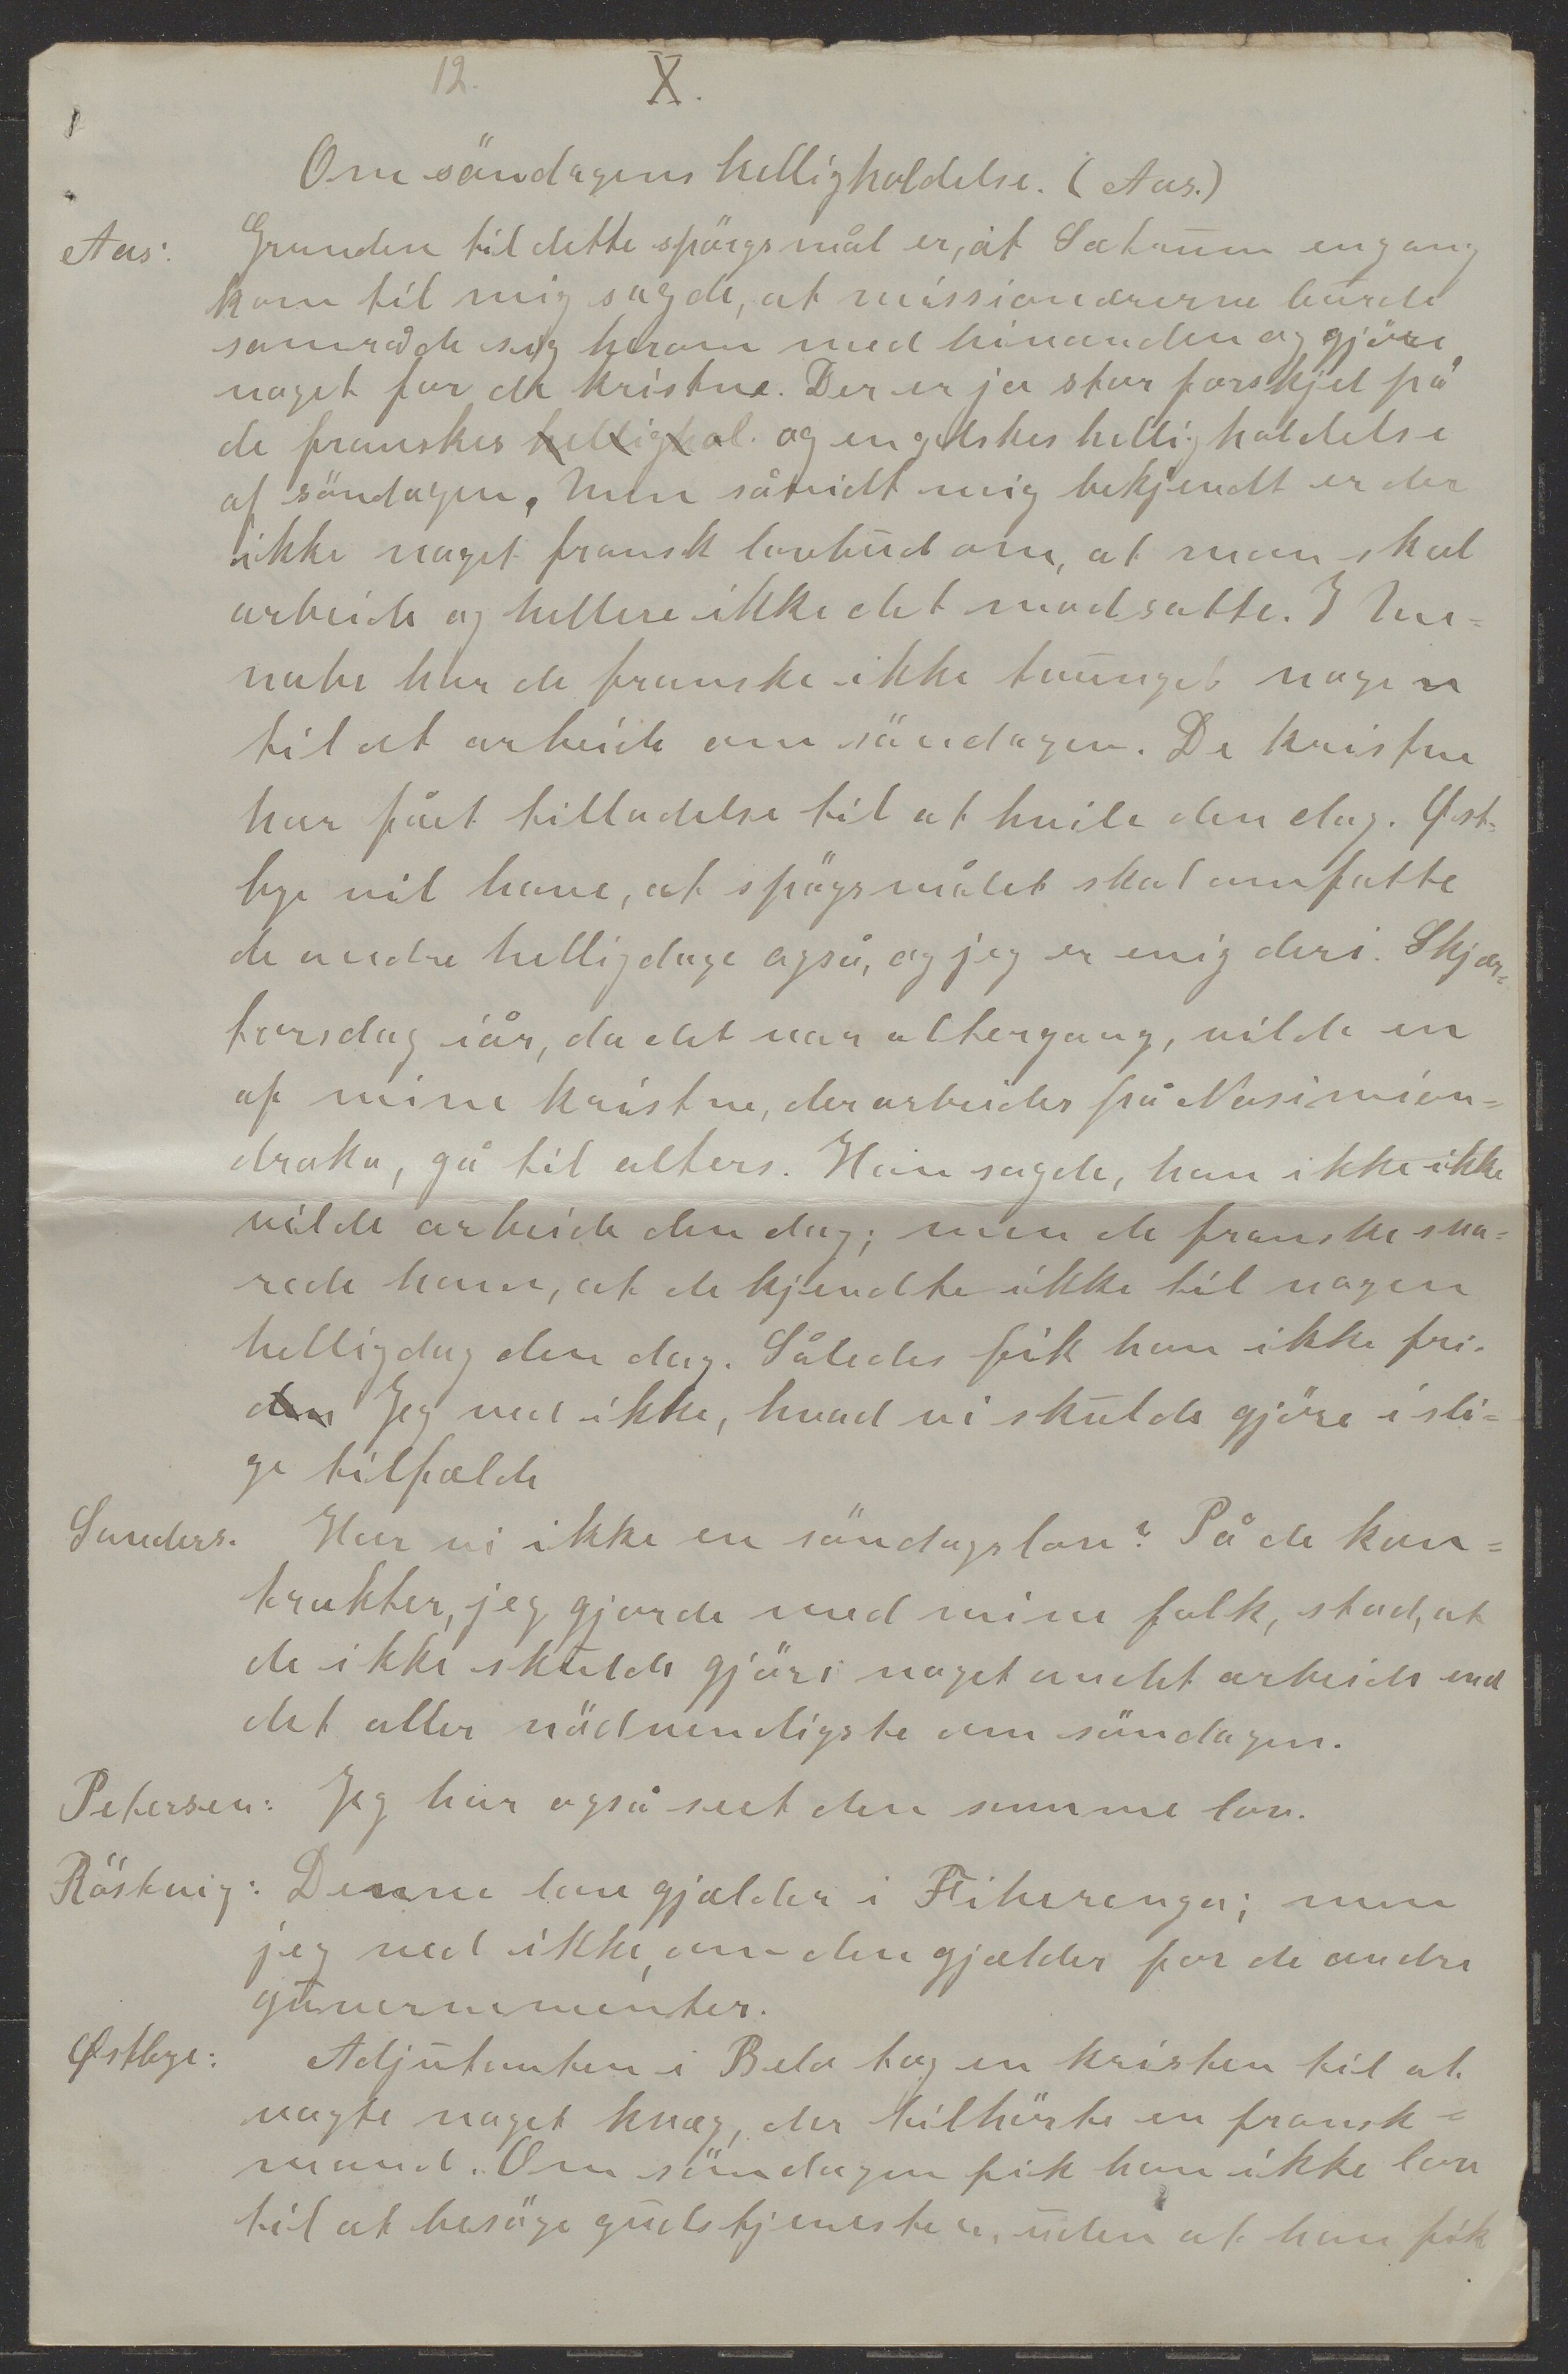 12. X.
Om söndagens helligholdelse. (Aas.)
Aas: Grunden til dette spörgsmål er, at Sætrum engang
kom til mig sagde, at missionærerne burde
samråde sig herom med hinanden og gjöre
noget for de kristne. Der er jo stor forskjel på
de franskes hellighol. og engelskes helligholdelse
af söndagen. Men såvidt mig bekjendt er der
ikke noget fransk lovbud om, at man skal
arbeide og hellere ikke det modsatte. I Me-
nabe har de franske ikke tvunget nogen
til at arbeide om söndagen. De kristne
har fået tilladelse til at hvile den dag. Øst-
bye vil have, at spögsmålet skal omfatte
de andre helligdage også, og jeg er enig deri. Skjær-
torsdag iår, da det var altergang, vilde en
af mine kristne, der arbeider på Nosimion-
draka, gå til alters. Han sagde, han ikke ikke
vilde arbeide den dag; men de franske sva-
rede ham, at de kjendte ikke til nogen
helligdag den dag. Således fik han ikke fri.
den Jeg ved ikke, hvad vi skulde gjöre i sli-
ge tilfælde
Sunders. Har vi ikke en söndagslov? På de kon-
trakter, jeg gjorde med mine folk, stod, at
de ikke skulde gjöre noget andet arbeide end
det aller nödvendigste om söndagen.
Petersen: Jeg har også seet den samme lov.
Röstvig: Denne lov gjælder i Fiherenga; men
jeg ved ikke, om den gjælder for de andre
guvernementer.
Østbye: Adjutanten i Belo tog en kristen til at
vogte noget kvæg, der tilhörte en fransk-
mand. Om söndagen fik han ikke lov
til at besöge gudstjenesten, uden at han fik